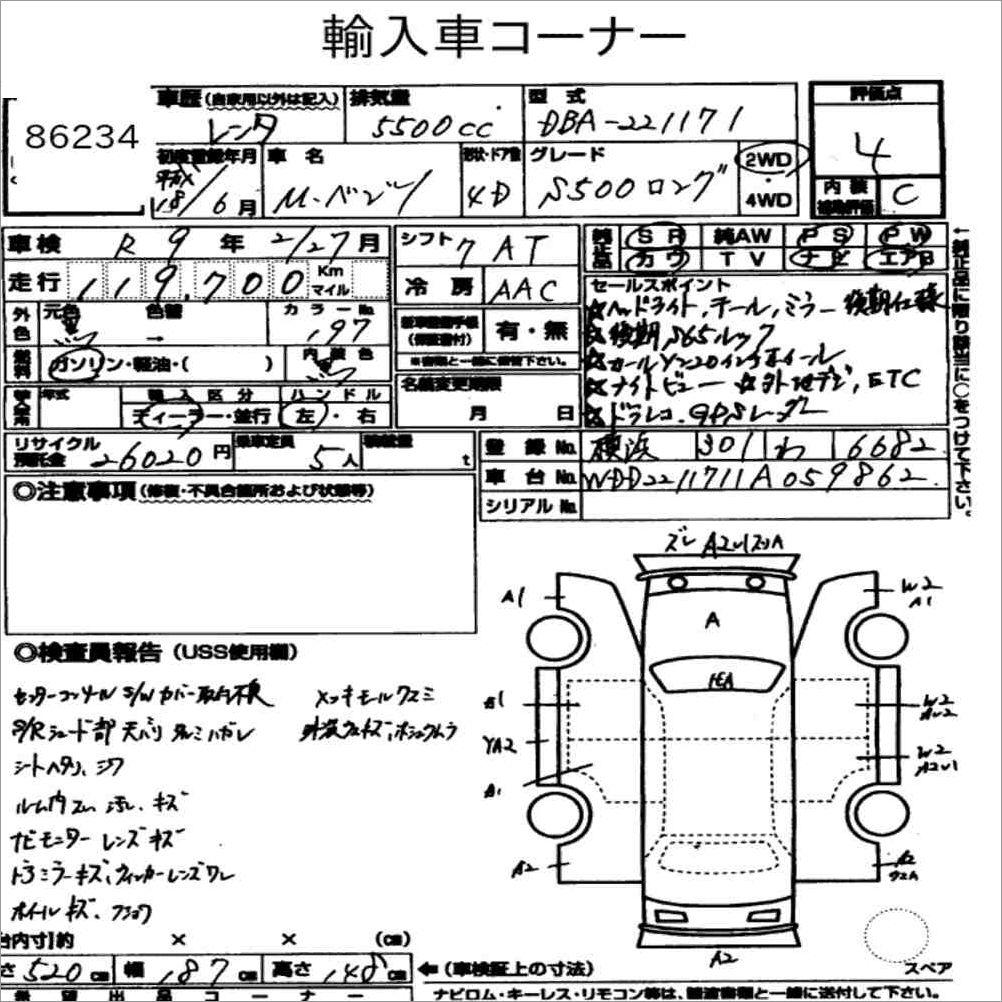 輸入車コーナー
86234
車歴 (自家用以外は記入) 排気量 型式 評価点
レンタ 5500cc DBA-221171 4
初度登録年月 車名 形状・ドア数 グレード 2WD
平成 18/6月 M・ベンツ 4D S500ロング ・ 4WD
内装補助評価 C
車検 R9年2/27月 シフト 7AT 純正品 SR 純AW PS PW
走行 119,700 Km マイル カワ TV ナビ エアB
冷房 AAC
セールスポイント
外色 元色 色替 カラーNo. 197
☆ヘッドライト,テール,ミラー後期仕様
新車整備手帳 (保証書付) 有・無
☆後期S65ルック
※書類と一緒に備管下さい。
燃料 ガソリン・軽油・( ) 内装色
☆カールソン20インチホイール
名義変更期限 月 日
☆ナイトビュー ☆外地デジ,ETC
輸入車用 年式 輸入区分 ハンドル
ディーラー・並行 左・右
☆ドラレコ.GPSレーダー
←純正品に限り該当に○をつけて下さい。
リサイクル預託金 26020円 乗車定員 5人 積載量 t
登録No. 横浜 301 わ 6682
車台No. WDD2211711A059862
シリアルNo.
◎注意事項 (修復・不具合箇所および状態等)
◎検査員報告 (USS使用欄)
センターコンソールS/Wカバー取付不良 メッキモールクスミ
S/Rシェード部天バリ ハガレ
シートヘタリ、シワ
ルーム内スレ 汚レ、キズ
ナビモニターレンズキズ
ドアミラーキズ,ウィンカーレンズワレ
ホイールキズ、フショク
ズレ A2
A1
W2
A1
A
YA2
W2
W2
A2
A2
A2
スペア
台内寸|約 × × (cm)
さ 520cm 幅 187cm 高さ 148cm ←(車検証上の寸法)
希望出品コーナー
ナビロム・キーレス・リモコン等は、譲渡書類と一緒に送付して下さい。